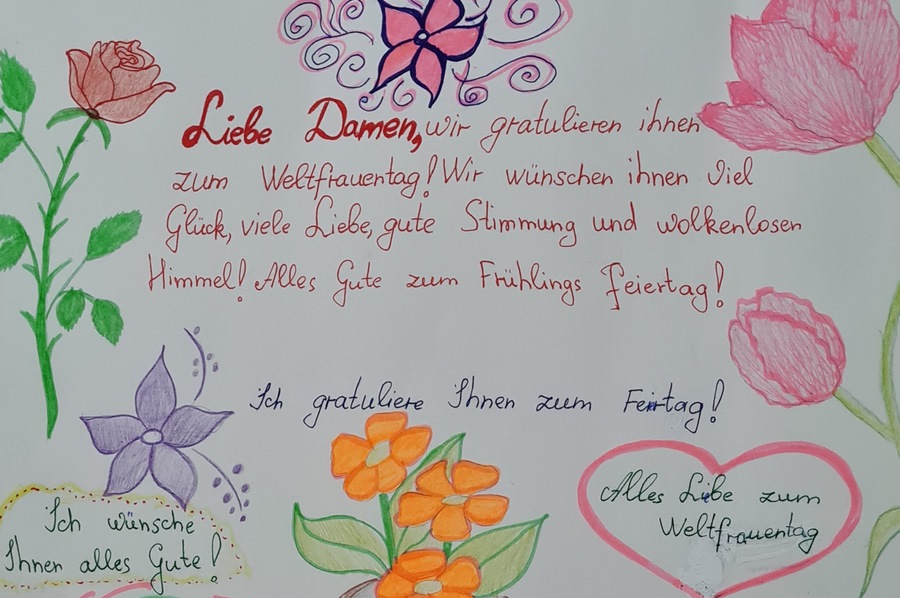 Liebe Damen, wir gratulieren ihnen
zum Weltfrauentag! Wir wünschen ihnen viel
Glück, viele Liebe, gute Stimmung und wolkenlosen
Himmel! Alles Gute zum Frühlings Feiertag!
Ich gratuliere Ihnen zum Feirtag!
Ich wünsche
Ihnen alles Gute!
Alles Libe zum
Weltfrauentag